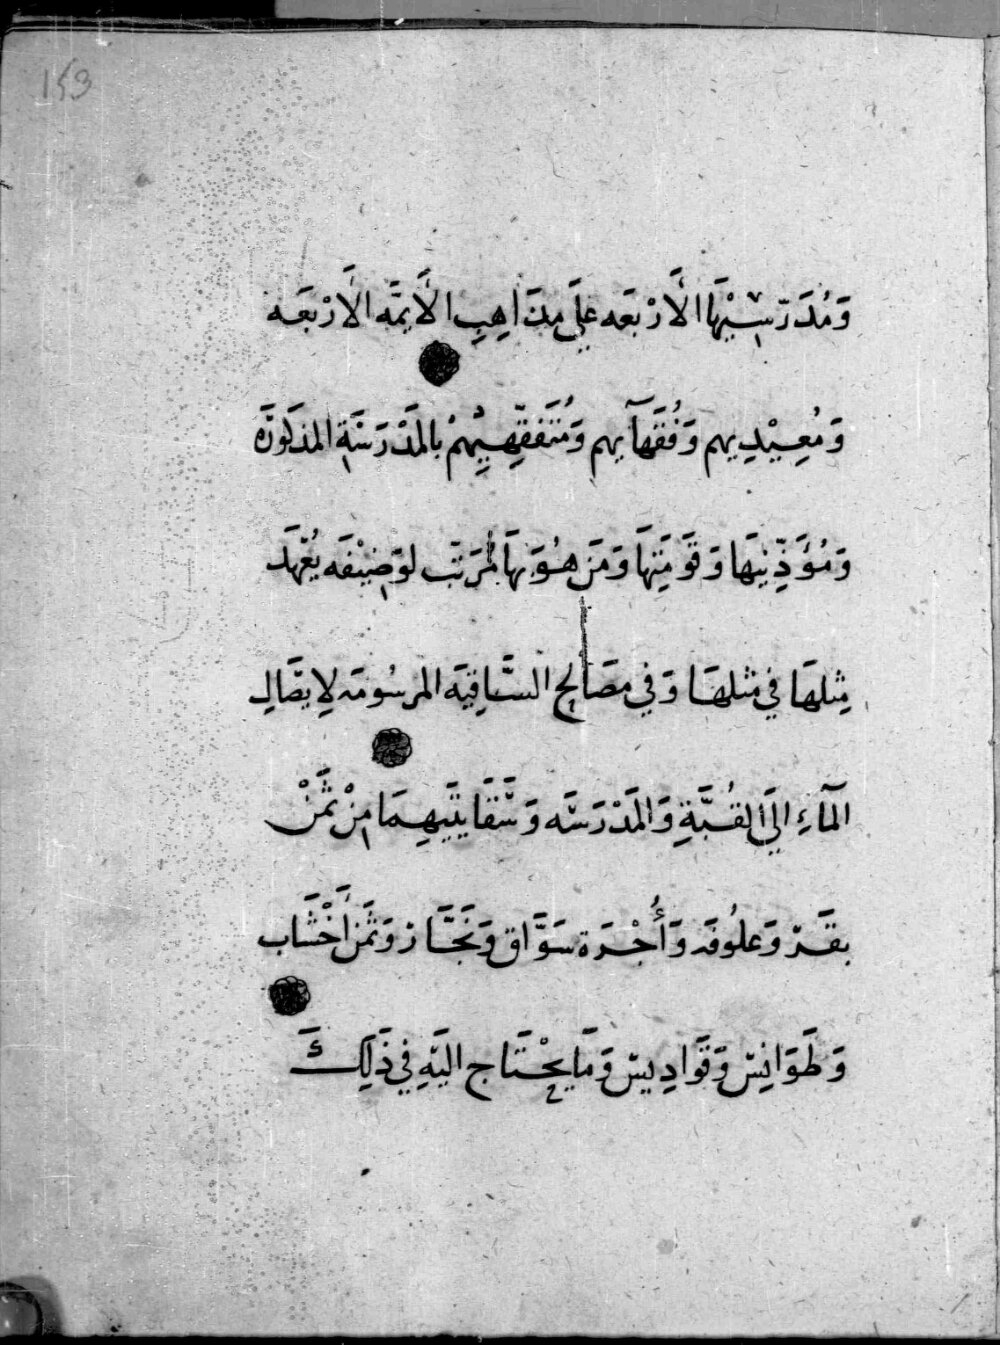 153
وَمُدَرّسِيْهَا الأَرْبَعَه عَلَى مذَاهِبِ الأَئمَّه الأَرْبَعَه
وَمُعِيْدِيهم وَفُقَهآيهم وَمُتَفَقِّهِيْهِمْ بالمَدْرَسَةِ المذكورَه
وَمُؤَذِّنِيهَا وَقَوَمَتِهَا وَمَن هُوَ بهَا مُرَتب لوَضِيْفَه يُعْهَدَ
مِثلهَا في مثلهَا وَفي مصَالحِ السَّاقِيَه المرسُومَه لاِيصَالِ
المآءِ اِلَى القُبَّةِ وَالمَدْرَسَه وَسَّقَايَتَيهِمَا مِنْ ثَمَنْ
بقَر وَعلُوفَه وَأُجْرَة سَوَّاق وَنَجَّار وَثَمَن أَخْشَاب
وَطَوَانِس وَقَوَادِيس وَمَا يحْتَاج اليَهِ في ذَلِكَ